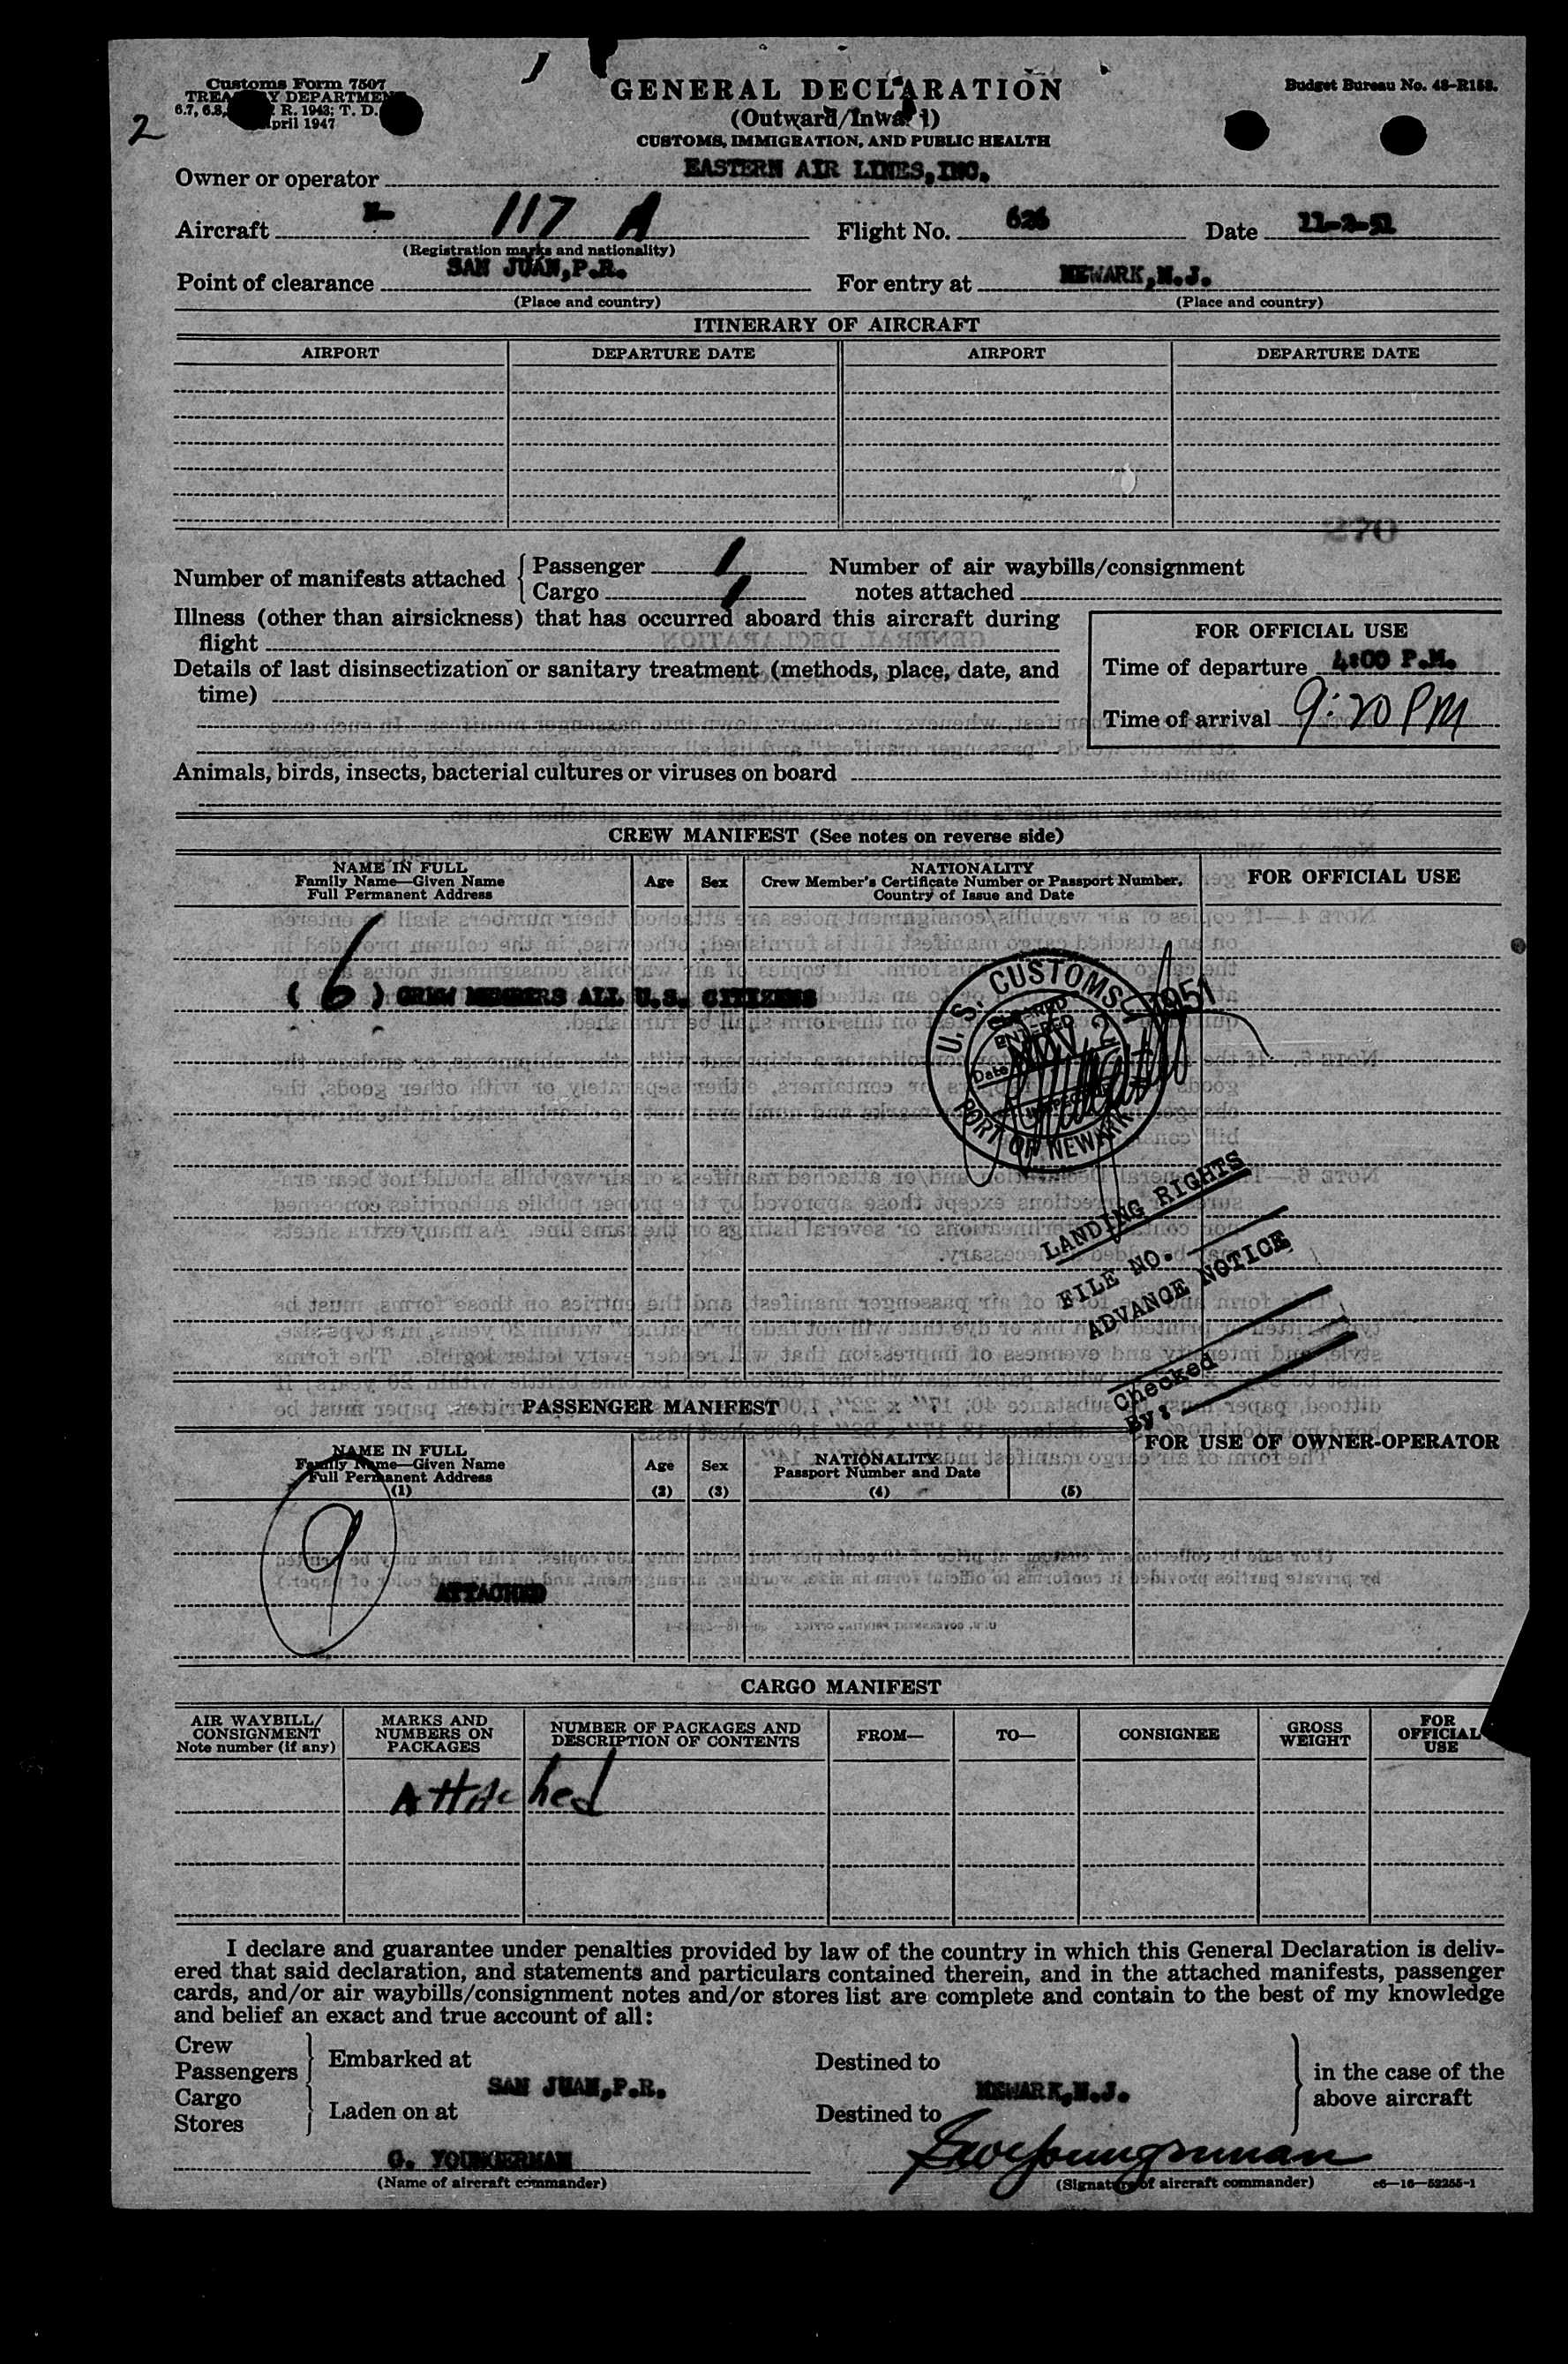 Customs Form 7507
TREASURY DEPARTMENT
6.7, 6.8, R. 1943; T. D.
April 1947
2
GENERAL DECLARATION
(Outward/Inward)
CUSTOMS, IMMIGRATION, AND PUBLIC HEALTH
Budget Bureau No. 48-R153.
Owner or operator EASTERN AIR LINES, INC.
Aircraft N- 117 A Flight No. 626 Date 11-2-51
(Registration marks and nationality)
Point of clearance SAN JUAN, P.R. For entry at NEWARK, N.J.
(Place and country) (Place and country)
ITINERARY OF AIRCRAFT
AIRPORT DEPARTURE DATE AIRPORT DEPARTURE DATE
270
Number of manifests attached { Passenger 1 Number of air waybills/consignment
Cargo 1 notes attached
Illness (other than airsickness) that has occurred aboard this aircraft during
flight
Details of last disinsectization or sanitary treatment (methods, place, date, and
time)
FOR OFFICIAL USE
Time of departure 4:00 P.M.
Time of arrival 9:20 PM
Animals, birds, insects, bacterial cultures or viruses on board
CREW MANIFEST (See notes on reverse side)
NAME IN FULL
Family Name—Given Name
Full Permanent Address
Age Sex
NATIONALITY
Crew Member's Certificate Number or Passport Number,
Country of Issue and Date
FOR OFFICIAL USE
( 6 ) CREW MEMBERS ALL U.S. CITIZENS
U. S. CUSTOMS
ENTERED
Date NOV 2 1951
INSPECTOR
PORT OF NEWARK
LANDING RIGHTS
FILE NO.
ADVANCE NOTICE
Checked
By:
PASSENGER MANIFEST
NAME IN FULL
Family Name—Given Name
Full Permanent Address
(1)
Age
(2)
Sex
(3)
NATIONALITY
Passport Number and Date
(4) (5)
FOR USE OF OWNER-OPERATOR
9
ATTACHED
CARGO MANIFEST
AIR WAYBILL/
CONSIGNMENT
Note number (if any)
MARKS AND
NUMBERS ON
PACKAGES
NUMBER OF PACKAGES AND
DESCRIPTION OF CONTENTS
FROM— TO— CONSIGNEE
GROSS
WEIGHT
FOR
OFFICIAL
USE
Attached
I declare and guarantee under penalties provided by law of the country in which this General Declaration is deliv-
ered that said declaration, and statements and particulars contained therein, and in the attached manifests, passenger
cards, and/or air waybills/consignment notes and/or stores list are complete and contain to the best of my knowledge
and belief an exact and true account of all:
Crew
Passengers } Embarked at Destined to
SAN JUAN, P.R. NEWARK, N.J.
Cargo
Stores } Laden on at Destined to
in the case of the
above aircraft
G. YOUNGERMAN
(Name of aircraft commander) (Signature of aircraft commander) c6—16—52255-1